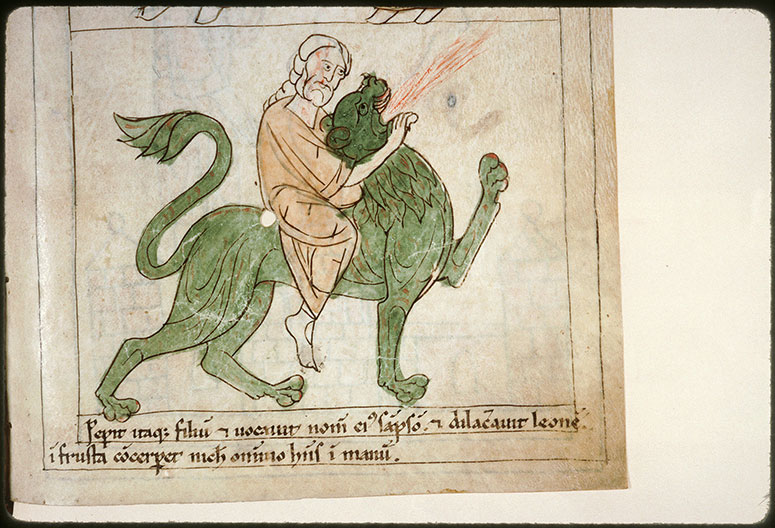 Pepit itaq; filiū ⁊ uocauit nom̄ ei⁹ sāpsō. ⁊ dilac̄auit leonē
ī frusta cōcerpet nich̄ om̄ino hn̄s ī manu.